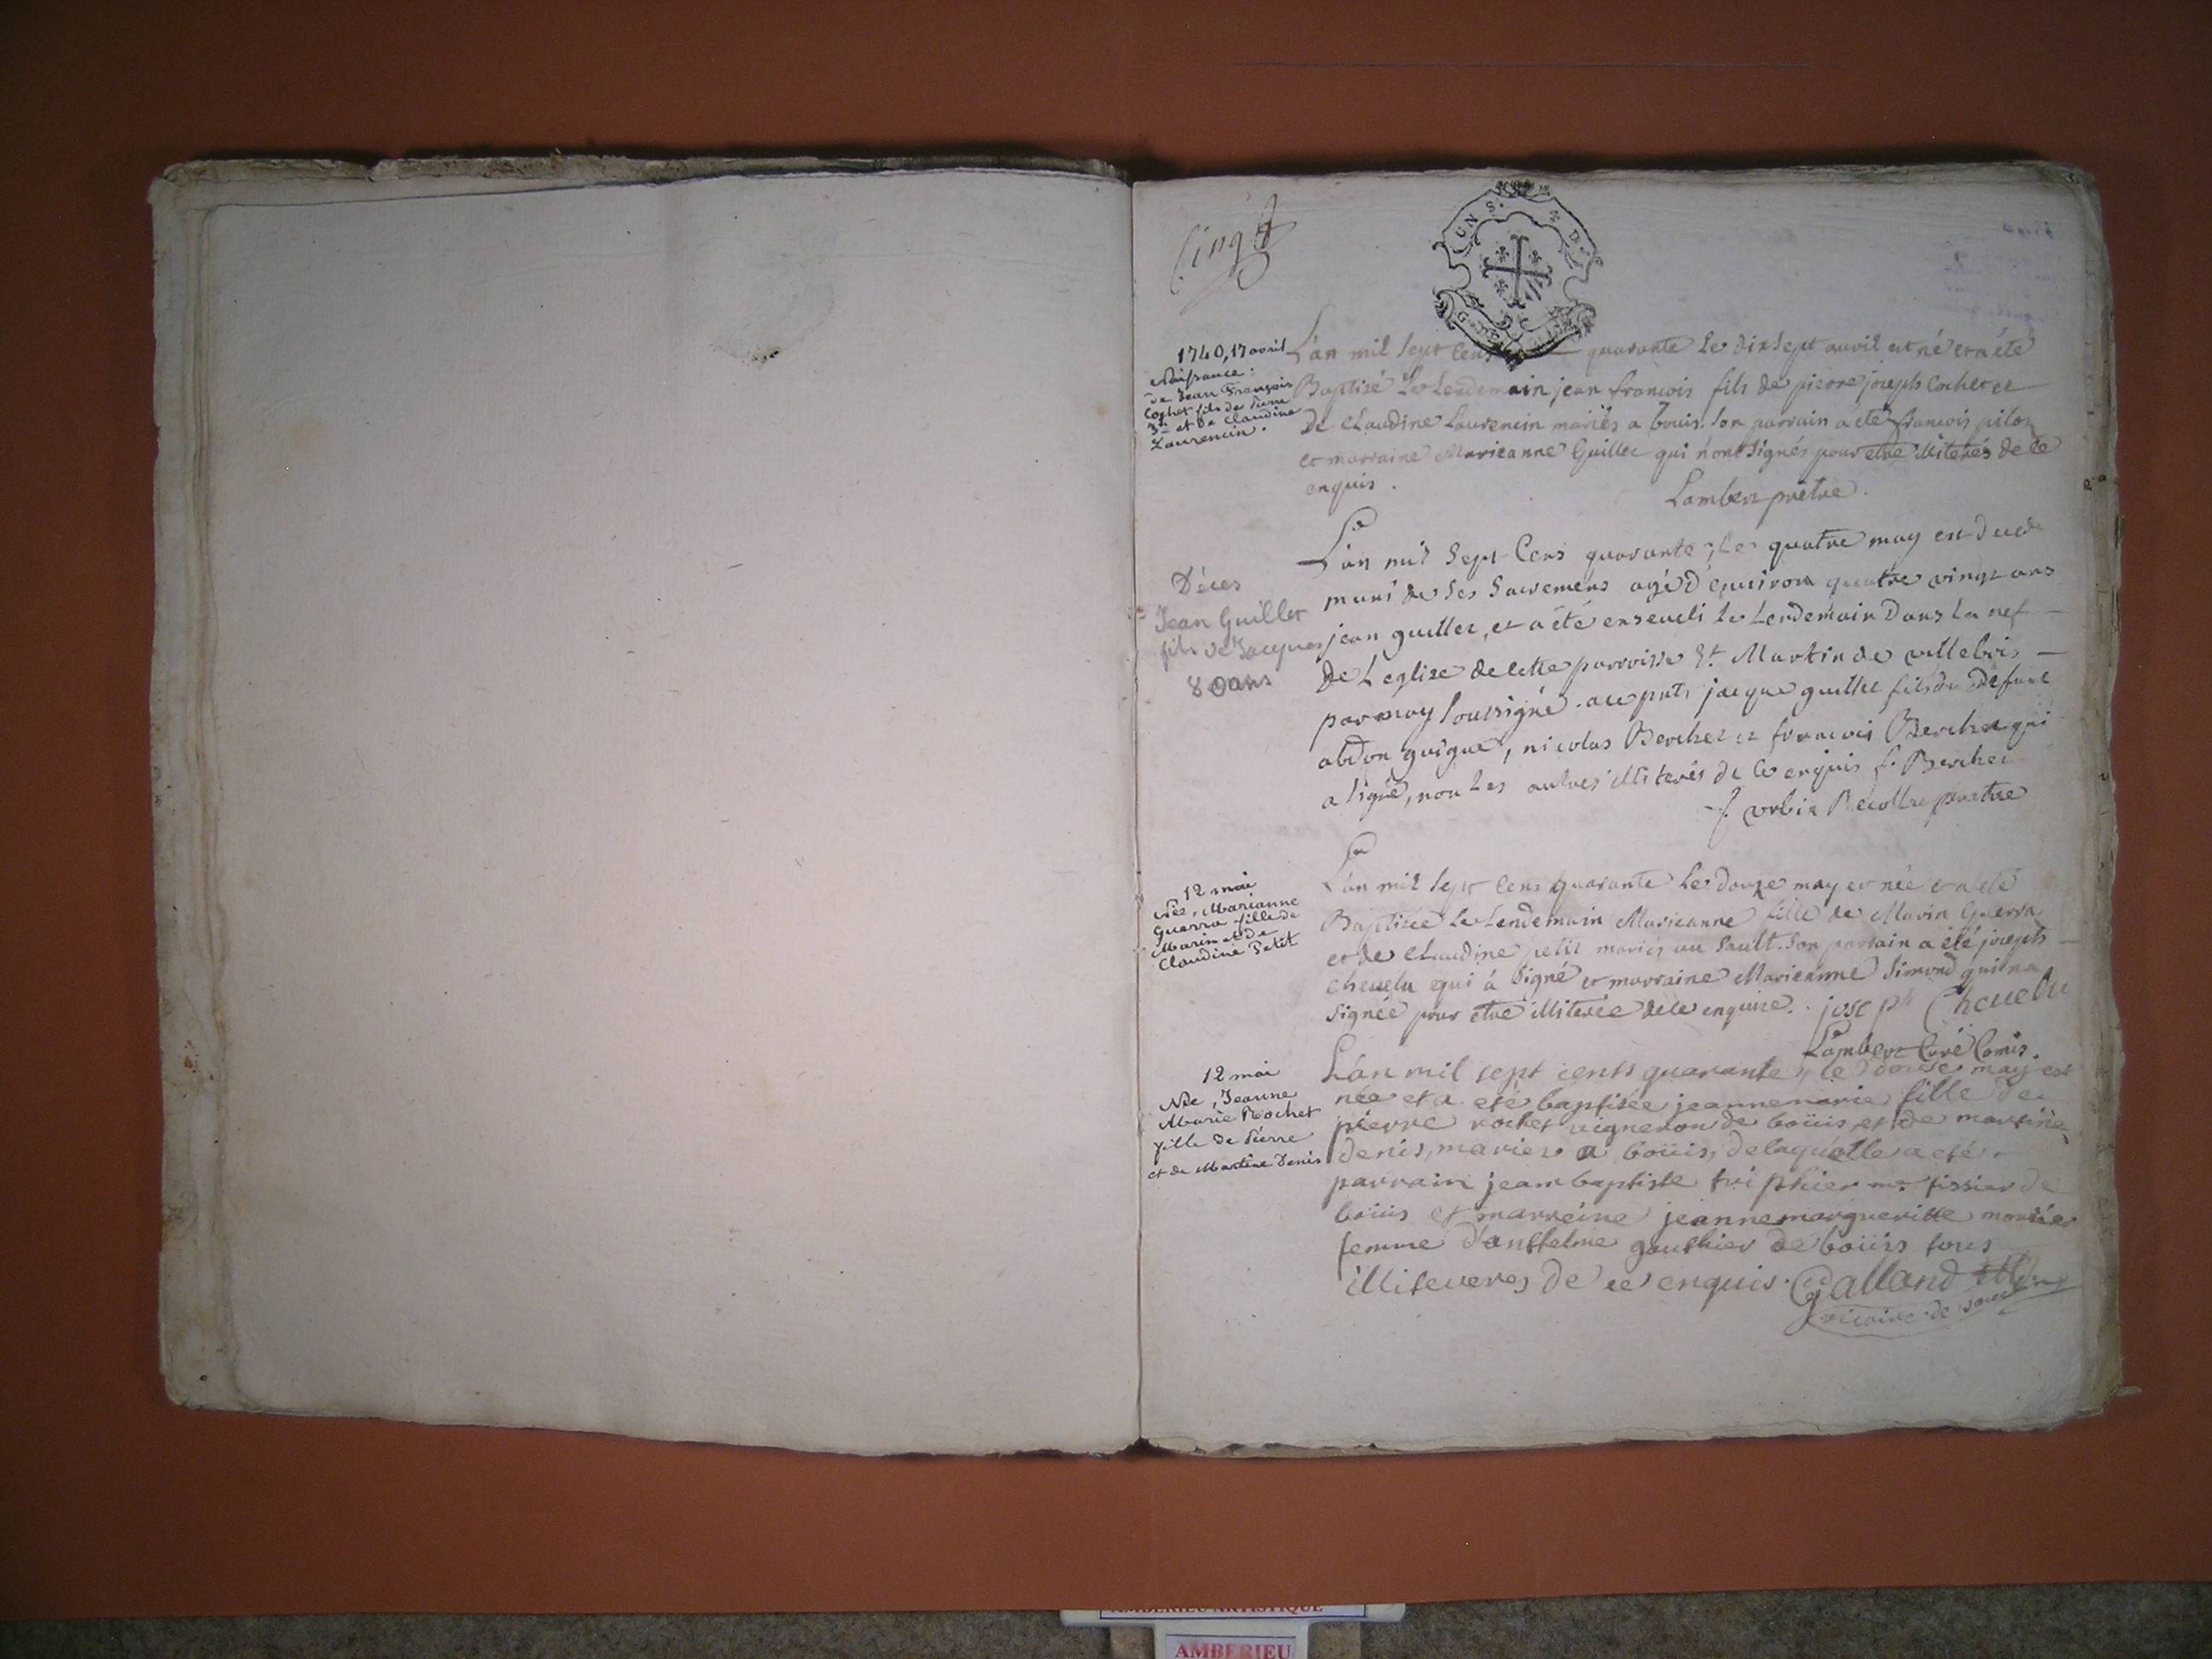 Cinq
UN S.
1740, 17 avril
Naissance:
de Jean François
Cochet fils de Pierre
Jh et de Claudine
Laurencin.
L'an mil sept cens quarante le dixsept avril est né et a été
Baptisé le Lendemain jean francois fils de pierre joseph Cochet et
de Claudine Laurencin mariés a bouis. son parrain a été francois pilon
et marraine Marieanne Guillet qui n'ont signés pour etre illiterés de ce
enquis.
Lambert prêtre.
Déces
Jean Guillet
fils de Jacques
80 ans
L'an mil sept Cens quarante, le quatre may est decde
muni de ses sacremens agé d'environ quatre vingt ans
jean guillet, et a été enseveli le Lendemain dans la nef
de L'eglise de cette parroisse St. Martin de villebois
par moy soussigné. acc pnts jacque guillet fils du défunt
abdon guigue, nicolas Berchet et francois Berchet qui
a signé, non Les autres illiterés de ce enquis f. Berchet
f. urbin Recollet prêtre
12 mai
Née, Marianne
Guerra fille de
Marin et de
Claudine Petit
L'an mil sept cens quarante le douze may est née et a été
Baptisée le Lendemain Marieanne fille de Marin Guerra
et de Claudine petit mariés au Sault. son parrain a été joseph
chevelu qui à signé et marraine Marieanne Simond qui n'a
signée pour etre illiterée de ce enquise. joseph Chevelu
Lambert Curé Comis.
12 mai
Née, Jeanne
Marie Rochet
fille de Pierre
et de Martine Denis
L'an mil sept cents quarante, le douse may est
née et a eté baptisée jeannemarie fille de
pierre rochet vigneron de boüis, et de martine
denis, mariez a boüis, delaquelle a eté
parrain jeambaptiste triphier me tissier de
boüis et marreine jeannemargueritte mortier
femme d'antselme gauthier de boüis tous
illiteveres de ce enquis. Galland
vicaire de
AMBERIEU ARTISTIQUE
AMBERIEU